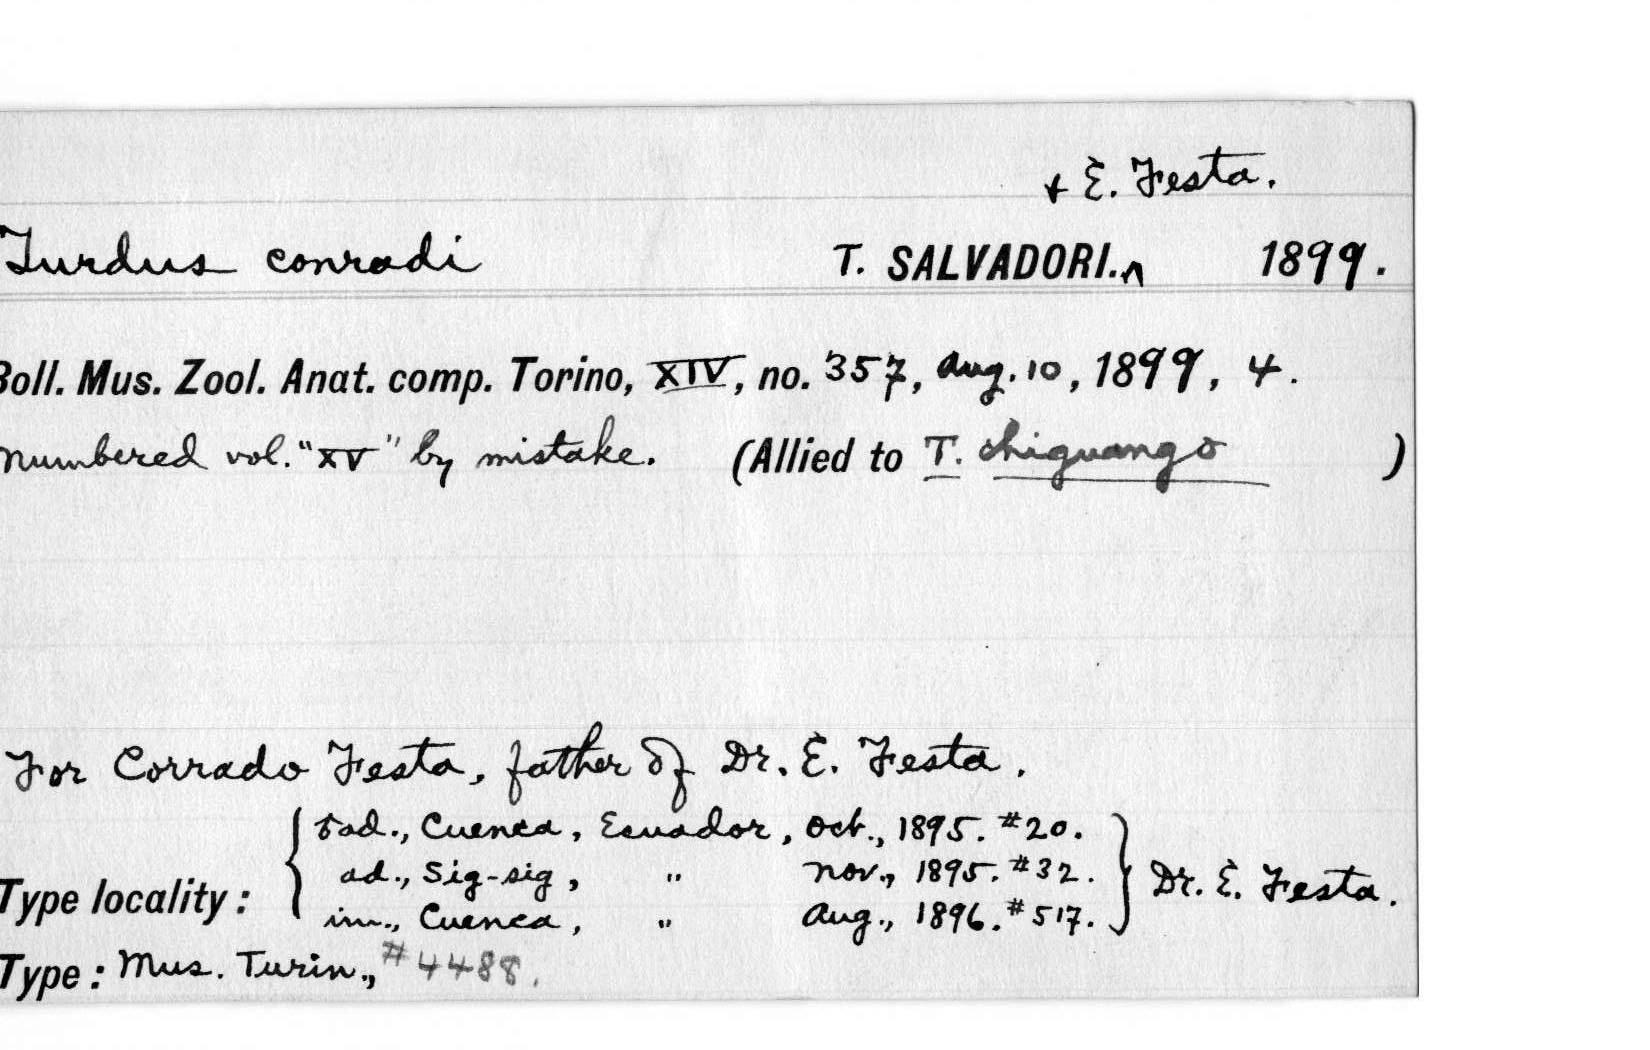 & E. Festa.
Turdus conradi T. SALVADORI.^ 1899.
Boll. Mus. Zool. Anat. comp. Torino, XIV, no. 357, Aug. 10, 1899, 4.
numbered vol. "XV" by mistake. (Allied to T. chiguango )
For Corrado Festa, father of Dr. E. Festa.
ad., Cuenca, Ecuador, Oct., 1895. #20.
ad., Sig-sig, " Nov., 1895. #32.
Type locality: Dr. E. Festa.
im., Cuenca, " Aug., 1896. #517.
Type: Mus. Turin., #4488.